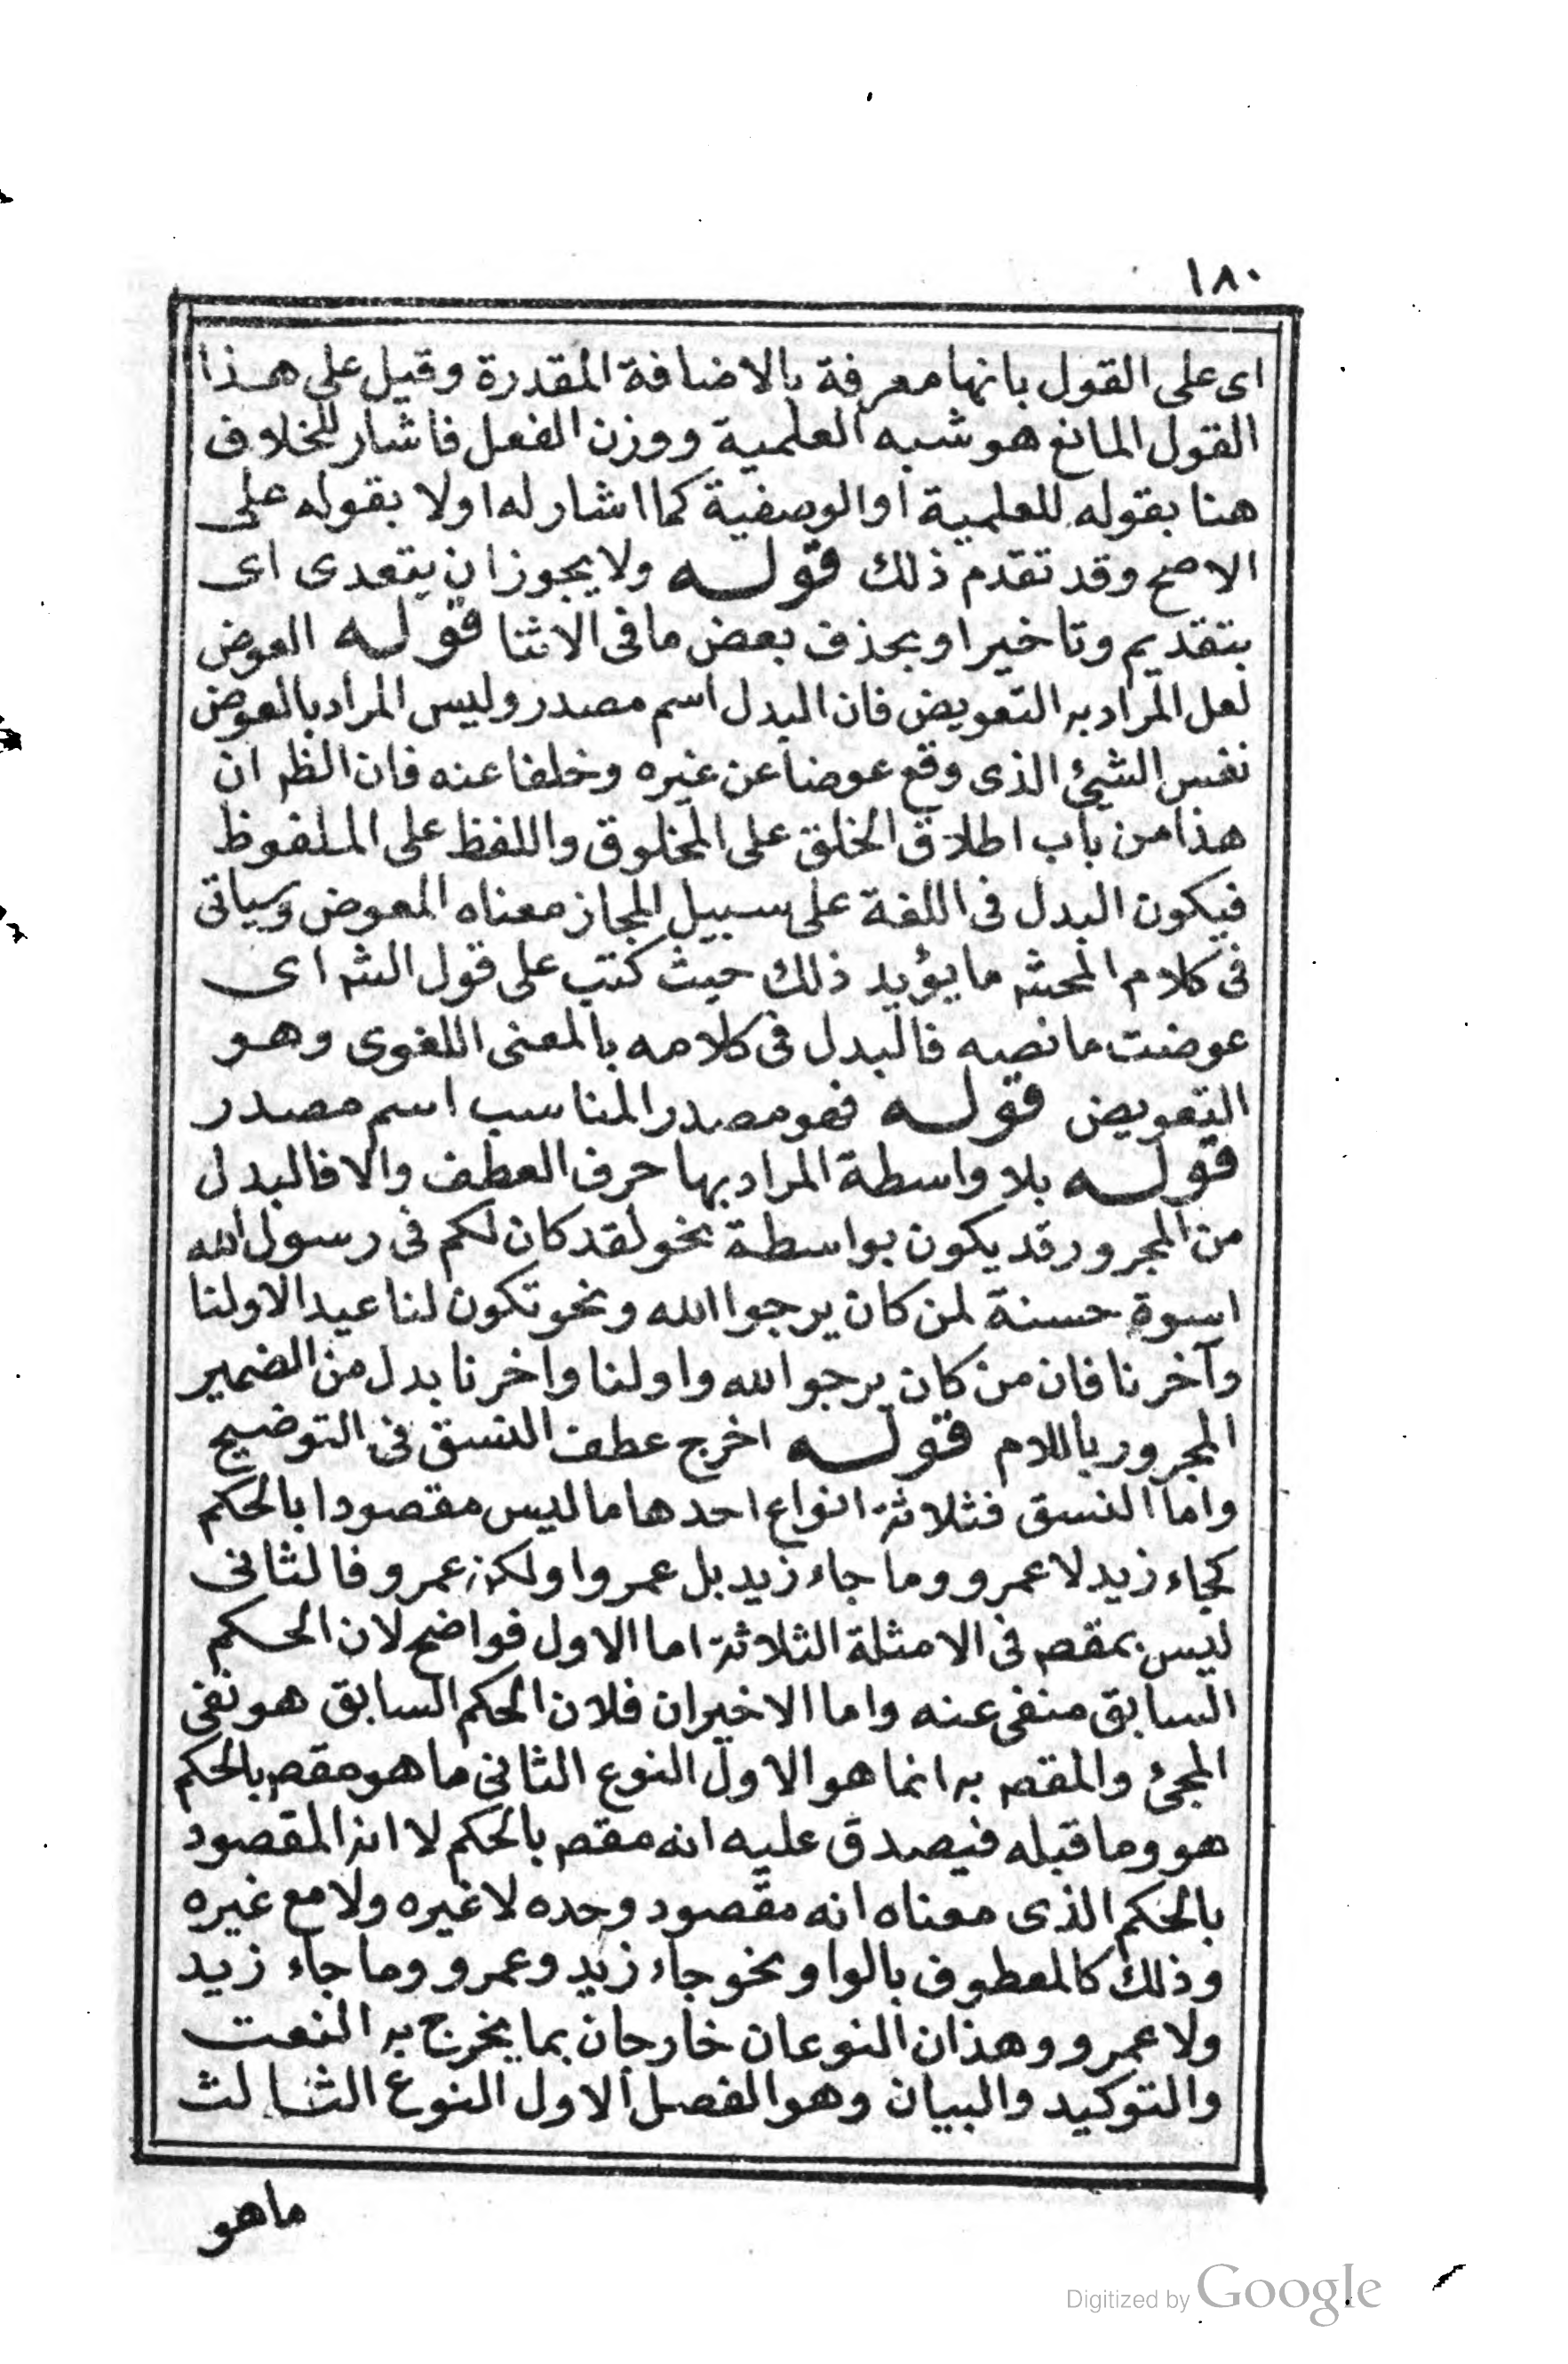 ١٨٠
اى على القول بانها معرفة بالاضافة المقدرة وقيل على هـذا
القول المانع هو شبه العلمية ووزن الفعل فاشار للخلاف
هنا بقوله للعلمية او الوصفية كما اشار له اولا بقوله على
الاصح وقد تقدم ذلك قولـه ولا يجوز ان يتعدى اى
بتقديم وتاخير او بحذف بعض ما فى الاثنا قولـه العوض
لعل المراد به التعويض فان البدل اسم مصدر وليس المراد بالعوض
نفس الشيئ الذى وقع عوضا عن غيره وخلفا عنه فان الظ ان
هذا من باب اطلاق الخلق على المخلوق واللفظ على الملفوظ
فيكون البدل فى اللغة على سبيل المجاز معناه المعوض وسياتى
فى كلام المحشى ما يؤيد ذلك حيث كتب على قول الش اى
عوضت ما نصه فالبدل فى كلامه بالمعنى اللغوى وهـو
التعويض قولـه فهو مصدر المناسب اسم مصدر
قولـه بلا واسطة المراد بها حرف العطف والا فالبدل
من المجرور قد يكون بواسطة نحو لقد كان لكم فى رسول الله
اسوة حسنة لمن كان يرجوا الله ونحو تكون لنا عيدا لاولنا
وآخرنا فان من كان يرجوا لله واولنا واخرنا بدل من الضمير
المجرور باللام قولـه اخرج عطف النسق فى التوضيح
واما النسق فثلاثة انواع احدها ما ليس مقصودا بالحكم
كجاء زيد لا عمرو وما جاء زيد بل عمرو او لكن عمرو فالثانى
ليس بمقص فى الامثلة الثلاثة اما الاول فواضح لان الحكم
السابق منفى عنه واما الاخيران فلان الحكم السابق هو نفى
المجئ والمقص به انما هو الاول النوع الثانى ما هو مقص بالحكم
هو وما قبله فيصدق عليه انه مقص بالحكم لا انه المقصود
بالحكم الذى معناه انه مقصود وحده لا غيره ولا مع غيره
وذلك كالمعطوف بالواو نحو جاء زيد وعمرو وما جاء زيد
ولا عمرو وهذان النوعان خارجان بما يخرج به النعت
والتوكيد والبيان وهو الفصل الاول النوع الثـالث
ماهو
Digitized by Google